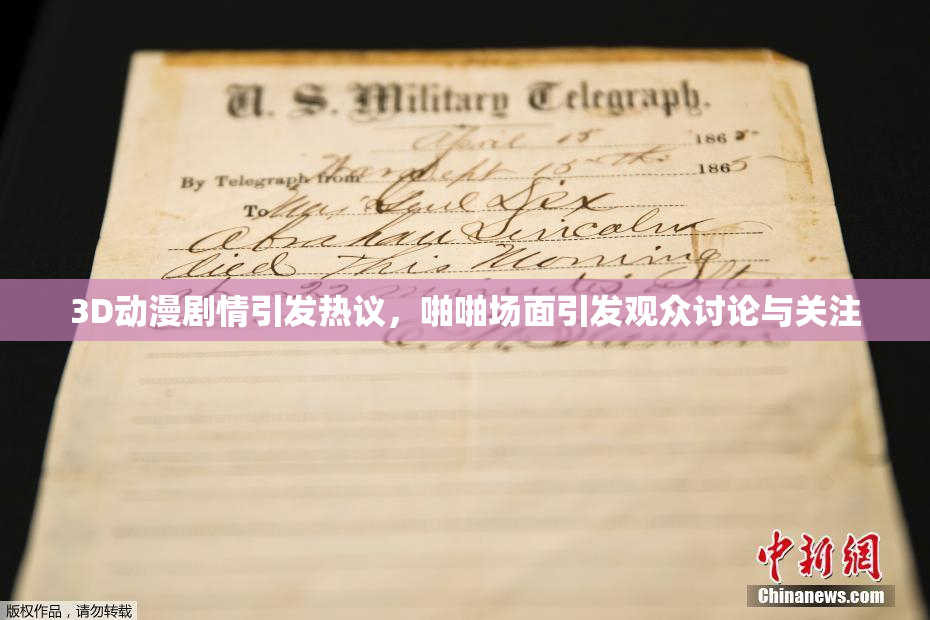 U. S. Military Telegraph.
April 15 1865
By Telegraph from War Dept 15th 1865
To Maj Genl Dix
Abraham Lincoln
died this Morning
at 22 minutes after
3D动漫剧情引发热议，啪啪场面引发观众讨论与关注
E. M. Stanton
中新网
Chinanews.com
版权作品，请勿转载